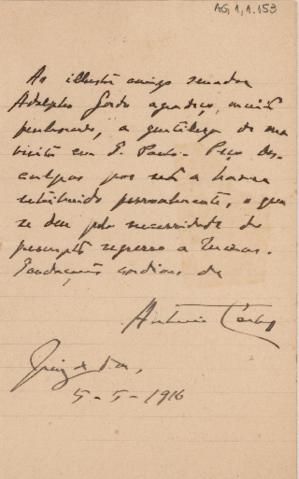 AG 1,1.153
Ao illustre amigo senador
Adolpho Gordo agradeço, muito
penhorado, a gentileza de sua
visita em S. Paulo. Peço des-
culpas por não a haver
retribuido pessoalmente, o que
se deu pela necessidade de
prompto regresso a
Saudações cordiaes de
Antonio Carlos
Juiz de Fóra,
5-5-1916